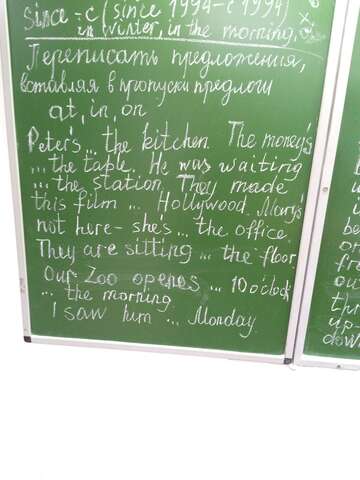 Since = с (since 1994 - с 1994)
in winter, in the morning,
Переписать предложения,
вставляя в пропуски предлоги
at, in, on
Peter's ... the kitchen. The money's
... the table. He was waiting
... the station. They made
this film ... Hollywood. Mary's
not here - she's ... the office.
They are sitting ... the floor.
Our Zoo openes ... 10 o'clock
... the morning.
I saw him ... Monday.